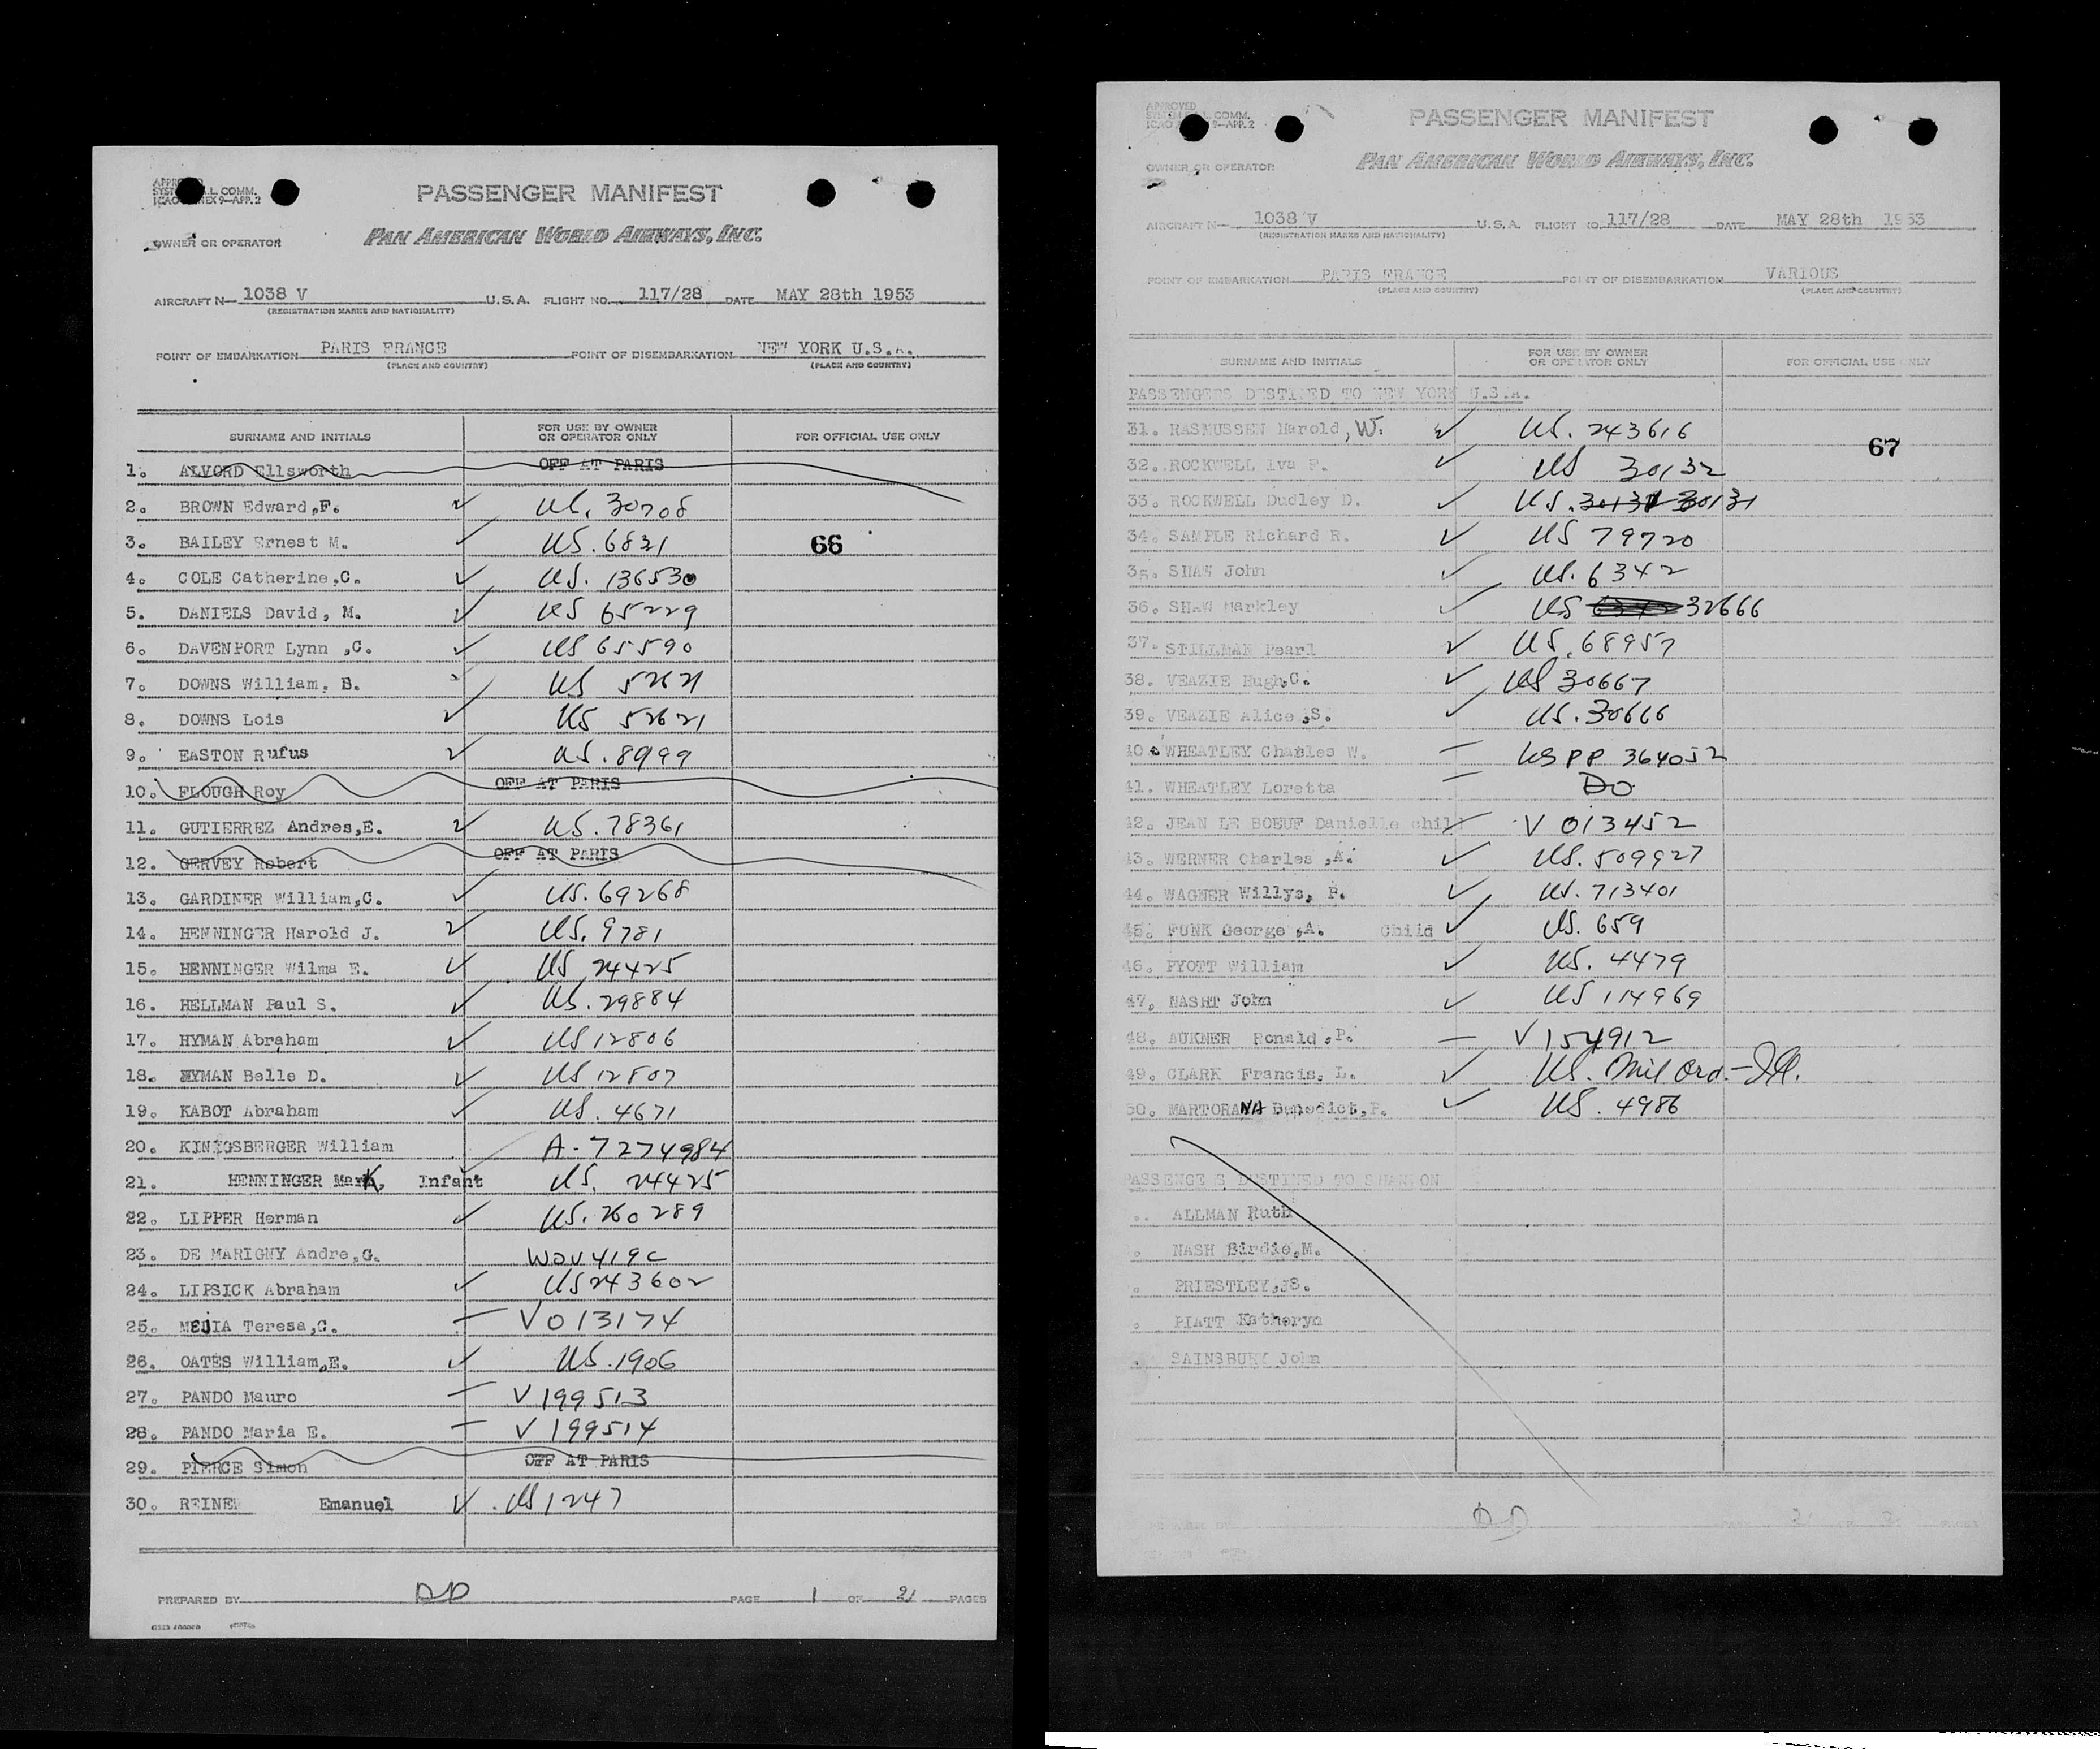 PASSENGER MANIFEST
PAN AMERICAN WORLD AIRWAYS, INC.
OWNER OR OPERATOR
AIRCRAFT N— 1038 V U.S.A. FLIGHT NO. 117/28 DATE MAY 28th 1953
(REGISTRATION MARKS AND NATIONALITY)
POINT OF EMBARKATION PARIS FRANCE POINT OF DISEMBARKATION NEW YORK U.S.A.
(PLACE AND COUNTRY) (PLACE AND COUNTRY)
SURNAME AND INITIALS FOR USE BY OWNER OR OPERATOR ONLY FOR OFFICIAL USE ONLY
1. ALVORD Ellsworth OFF AT PARIS
2. BROWN Edward,F. ✓ US. 30708
3. BAILEY Ernest M. ✓ US. 6821 66
4. COLE Catherine,C. ✓ US. 136530
5. DANIELS David, M. ✓ US 65229
6. DAVENPORT Lynn ,C. ✓ US 65590
7. DOWNS William, B. ✓ US 52621
8. DOWNS Lois ✓ US 52621
9. EASTON Rufus ✓ US. 8999
10. FLOUGH Roy OFF AT PARIS
11. GUTIERREZ Andres,E. ✓ US. 78361
12. GERVEY Robert OFF AT PARIS
13. GARDINER William,C. ✓ US. 69268
14. HENNINGER Harold J. ✓ US. 9781
15. HENNINGER Wilma E. ✓ US 24425
16. HELLMAN Paul S. ✓ US. 29884
17. HYMAN Abraham ✓ US 12806
18. HYMAN Belle D. ✓ US 12807
19. KABOT Abraham ✓ US. 4671
20. KINIGSBERGER William A-7274984
21. HENNINGER Mark, Infant ✓ US. 24425
22. LIPPER Herman ✓ US. 260289
23. DE MARIGNY Andre,G. WOV419C
24. LIPSICK Abraham ✓ US 243602
25. MEJIA Teresa,C. — V013174
26. OATES William,E. ✓ US. 1906
27. PANDO Mauro — V 199513
28. PANDO Maria E. — V 199514
29. PIERCE Simon OFF AT PARIS
30. REINE Emanuel ✓ US 1247
PREPARED BY DD PAGE 1 OF 2 PAGES
PASSENGER MANIFEST
PAN AMERICAN WORLD AIRWAYS, INC.
OWNER OR OPERATOR
AIRCRAFT N— 1038 V U.S.A. FLIGHT NO. 117/28 DATE MAY 28th 1953
(REGISTRATION MARKS AND NATIONALITY)
POINT OF EMBARKATION PARIS FRANCE POINT OF DISEMBARKATION VARIOUS
(PLACE AND COUNTRY) (PLACE AND COUNTRY)
SURNAME AND INITIALS FOR USE BY OWNER OR OPERATOR ONLY FOR OFFICIAL USE ONLY
PASSENGERS DESTINED TO NEW YORK U.S.A.
31. RASMUSSEN Harold, W. ✓ US. 243616
67
32. ROCKWELL Iva P. ✓ US 30132
33. ROCKWELL Dudley D. ✓ US. 30131 30131
34. SAMPLE Richard R. ✓ US 79720
35. SHAW John ✓ US. 6342
36. SHAW Markley ✓ US 6342 32666
37. STILLMAN Pearl ✓ US. 68957
38. VEAZIE Hugh,C. ✓ US 30667
39. VEAZIE Alice ,S. ✓ US. 30666
40. WHEATLEY Charles W. — US PP 364052
41. WHEATLEY Loretta — DO
42. JEAN LE BOEUF Danielle child ✓ V 013452
43. WERNER Charles ,A. ✓ US. 509927
44. WAGNER Willys, P. ✓ US. 713401
45. FUNK George ,A. Child ✓ US. 659
46. PYOTT William ✓ US. 4479
47. NASHT John ✓ US 114969
48. AUKNER Ronald ,P. — V 154912
49. CLARK Francis, L. ✓ US. Mil Ord.-
50. MARTORANA Benedict,P. ✓ US. 4986
PASSENGERS DESTINED TO SHANNON
ALLMAN Ruth
NASH Birdie,M.
PRIESTLEY,JS.
PIATT Katheryn
SAINSBURY John
DD 2 OF 2 PAGES